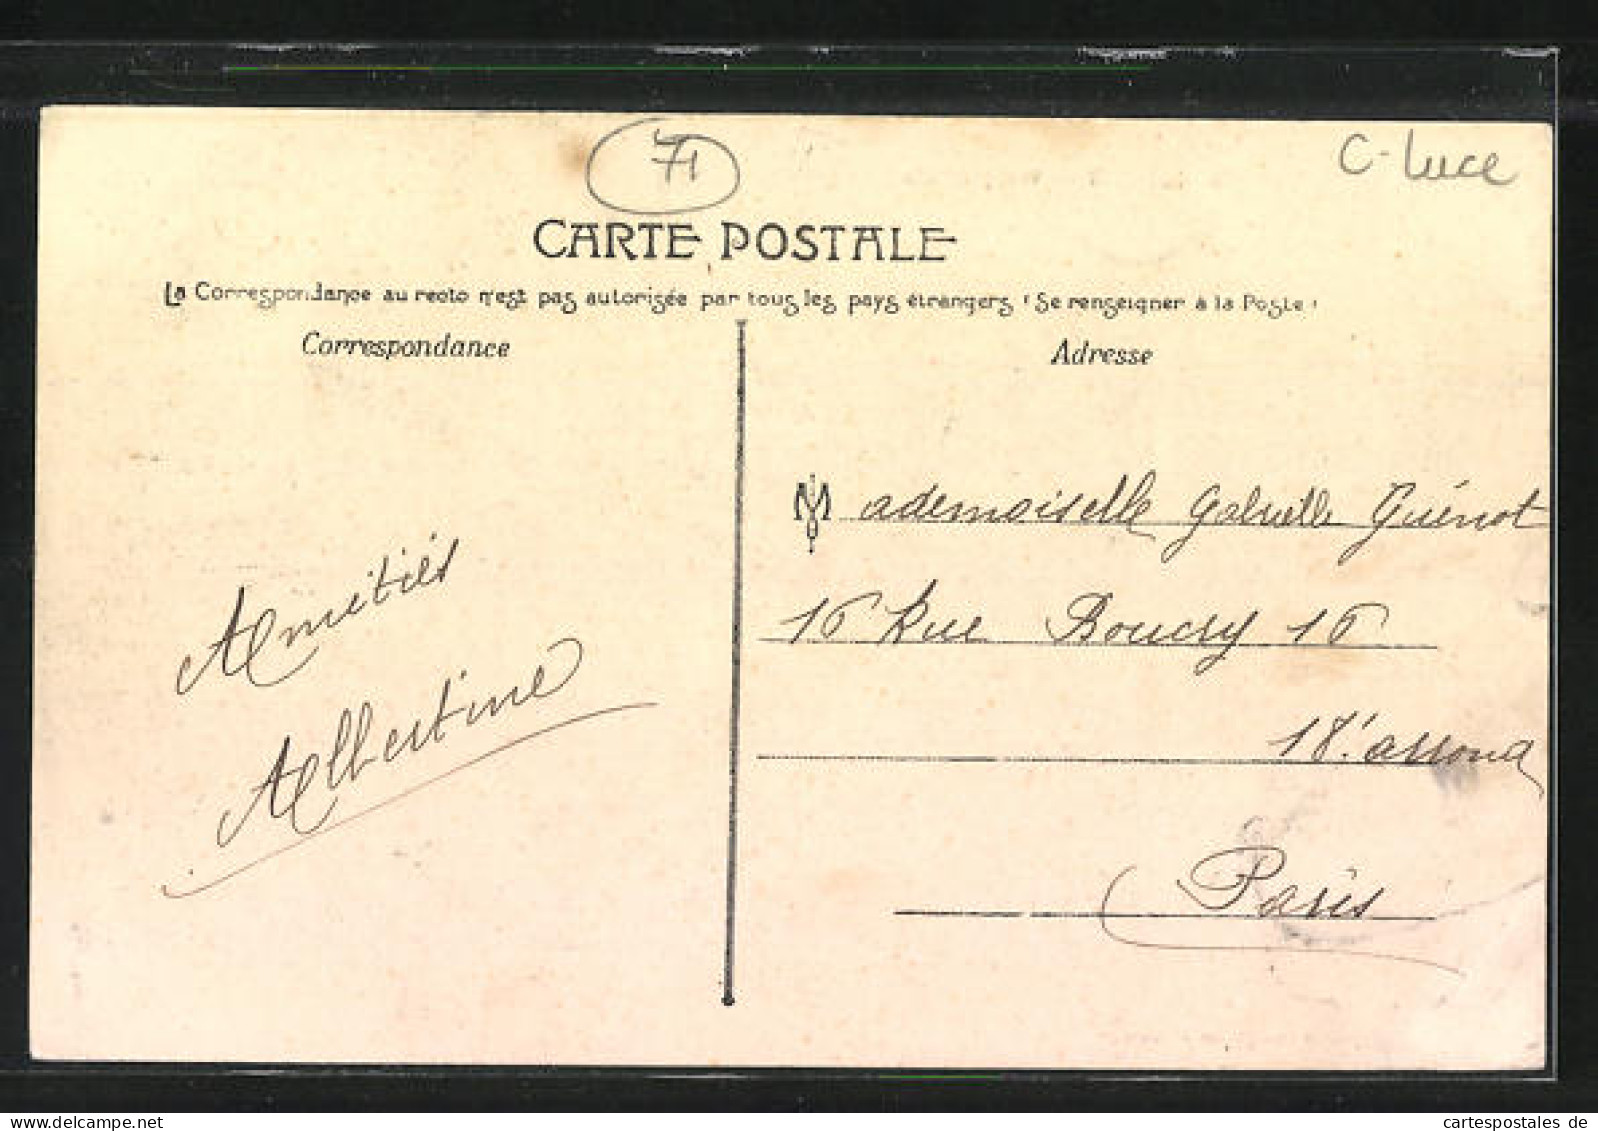 71
C-Luce
CARTE POSTALE
La Correspondance au recto n'est pas autorisée par tous les pays étrangers (Se renseigner à la Poste)
Correspondance
Adresse
Mademoiselle Gabrielle Guénot
16 Rue Boucry 16
18e arrond
Paris
Amitiés
Albertine
cartespostales de
www.delcampe.net